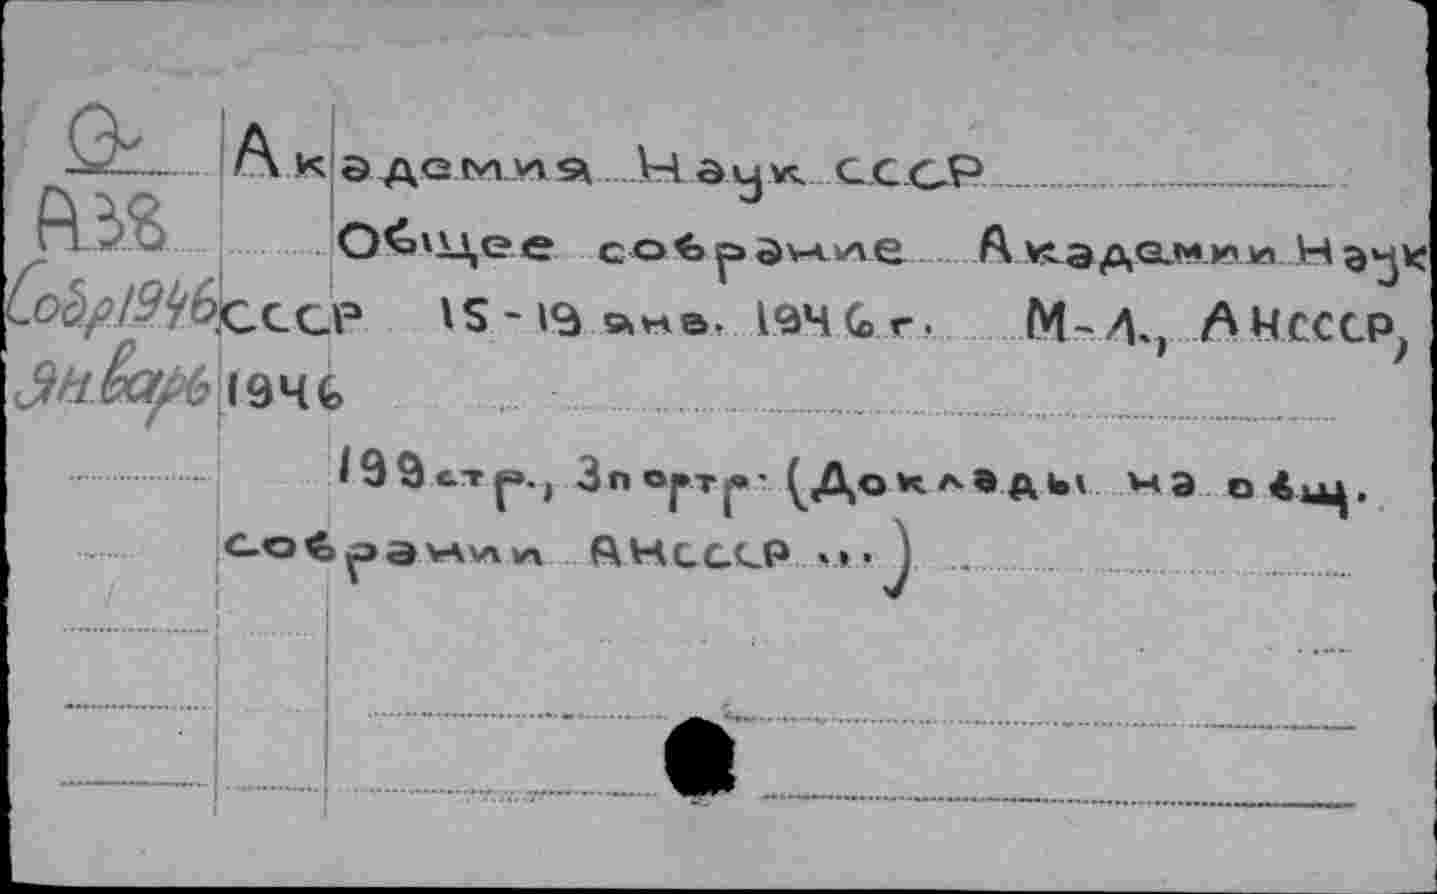 Q
A38
Собр1946
Январь
Академия Наук СССР
Общее собрание Академии Наук
СССР 15-19 янв. 1946 г. М-Л., АНСССР,
1946
199 стр., 3п ортр. (Доклады на общ.
собрании АНСССР ...)